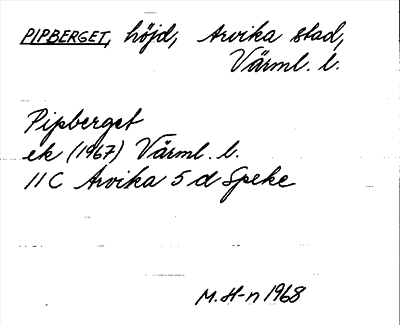 PIPBERGET, höjd, Arvika stad,
Värml. l.
Pipberget
ek (1967) Värml. l.
11 C Arvika 5 d Speke
M. H-n 1968